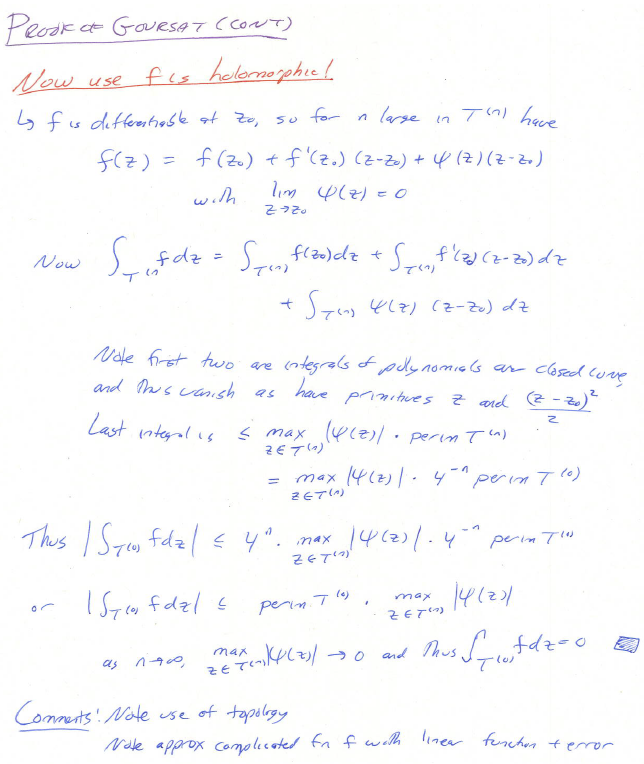 PROOF OF GOURSAT (CONT)
Now use f is holomorphic!
↳ f is differentiable at z₀, so for n large in T⁽ⁿ⁾ have
f(z) = f(z₀) + f'(z₀) (z-z₀) + ψ(z)(z-z₀)
with lim_{z→z₀} ψ(z) = 0
Now ∫_{T⁽ⁿ⁾} f dz = ∫_{T⁽ⁿ⁾} f(z₀)dz + ∫_{T⁽ⁿ⁾} f'(z₀)(z-z₀)dz
+ ∫_{T⁽ⁿ⁾} ψ(z) (z-z₀) dz
Note first two are integrals of polynomials over closed curve,
and thus vanish as have primitives z and (z-z₀)²/2
Last integral is ≤ max_{z∈T⁽ⁿ⁾} |ψ(z)| · perim T⁽ⁿ⁾
= max_{z∈T⁽ⁿ⁾} |ψ(z)| · 4⁻ⁿ perim T⁽⁰⁾
Thus |∫_{T⁽⁰⁾} f dz| ≤ 4ⁿ · max_{z∈T⁽ⁿ⁾} |ψ(z)| · 4⁻ⁿ perim T⁽⁰⁾
or |∫_{T⁽⁰⁾} f dz| ≤ perim T⁽⁰⁾ · max_{z∈T⁽ⁿ⁾} |ψ(z)|
as n→∞, max_{z∈T⁽ⁿ⁾} |ψ(z)| → 0 and thus ∫_{T⁽⁰⁾} f dz = 0
Comments: Note use of topology
Note approx complicated fn f with linear function + error